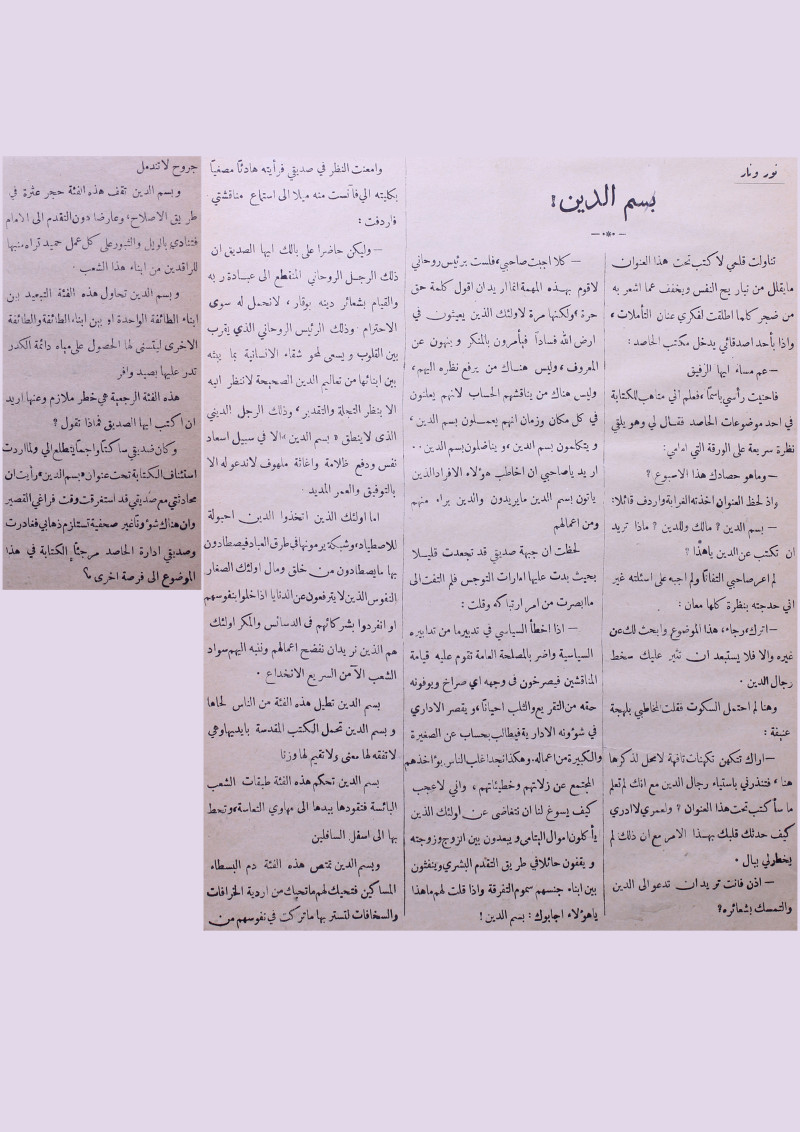 نور ونار
بسم الدين!
تناولت قلمي لاكتب تحت هذا العنوان
ما يقلل من تباريح النفس ويخفف عما اشعر به
من ضجر كلما اطلقت لفكري عنان التأملات،
واذا بأحد اصدقائي يدخل مكتب الحاصد:
— عم مساء ايها الرفيق
فاحنيت رأسي باسماً، فعلم اني متاهب للكتابة
في احد موضوعات الحاصد فقال لي وهو يلقي
نظرة سريعة على الورقة التي امامي:
— وماهو حصادك هذا الاسبوع؟
واذ لحظ العنوان اخذته الغرابة واردف قائلا:
— بسم الدين؟ مالك وللدين؟ ماذا تريد
ان تكتب عن الدين ياهذا؟
لم اعر صاحبي التفاتاً ولم اجبه على اسئلته غير
اني حدجته بنظرة كلها معان:
— اترك، رجاء، هذا الموضوع وابحث لك عن
غيره والا فلا يستبعد ان تثير عليك سخط
رجال الدين.
وهنا لم احتمل السكوت فقلت لمخاطبي بلهجة
عنيفة:
— اراك تتكهن تكهنات تافهة لامحل لذكرها
هنا، فتنذرني باستياء رجال الدين مع انك لم تعلم
ما سأكتب تحت هذا العنوان؟ ولعمري لا ادري
كيف حدثك قلبك بهذا الامر مع ان ذلك لم
يخطر لي ببال.
— اذن فانت تريد ان تدعو الى الدين
والتمسك بشعائره؟
— كلا اجبت صاحبي، فلست برئيس روحاني
لاقوم بهذه المهمة انما اريد ان اقول كلمة حق
حرة، ولكنها مرة لاولئك الذين يعيثون في
ارض الله فساداً فيأمرون بالمنكر وينهون عن
المعروف، وليس هناك من يرفع نظره اليهم،
وليس هناك من يناقشهم الحساب لانهم يعلنون
في كل مكان وزمان انهم يعملون بسم الدين،
ويتكلمون بسم الدين، ويناضلون بسم الدين..
اريد ياصاحبي ان اخاطب هؤلاء الافراد الذين
ياتون بسم الدين مايريدون والدين براء منهم
ومن اعمالهم
لحظت ان جبهة صديقي قد تجعدت قليلا
بحيث بدت عليها امارات التوجس فلم التفت الى
ما ابصرت من امر ارتباكه وقلت:
— اذا اخطأ السياسي في تدبير ما من تدابيره
السياسية واضر بالمصلحة العامة تقوم عليه قيامة
المناقشين فيصرخون في وجهه اي صراخ ويوفونه
حقه من التقريع والثلب احياناً، ويقصر الاداري
في شؤونه الادارية فيطالب بحساب عن الصغيرة
والكبيرة من اعماله. وهكذا نجد اغلب الناس يؤاخذهم
المجتمع عن زلاتهم وخطيئاتهم، واني لاعجب
كيف يسوغ لنا ان نتغاضى عن اولئك الذين
يأكلون اموال اليتامى ويبعدون بين الزوج وزوجته
ويقفون حائلا في طريق التقدم البشري وينفثون
بين ابناء جنسهم سموم التفرقة واذا قلت لهم ماهذا
ياهؤلاء اجابوك: بسم الدين!
وامعنت النظر في صديقي فرأيته هادئاً مصغياً
بكليته الي فآنست منه ميلا الى استماع مناقشتي
فاردفت:
— وليكن حاضرا على بالك ايها الصديق ان
ذلك الرجل الروحاني المنقطع الى عبادة ربه
والقيام بشعائر دينه بوقار، لانحمل له سوى
الاحترام وذلك الرئيس الروحاني الذي يقرب
بين القلوب ويسعى لمحو شقاء الانسانية بما يبثه
بين ابنائها من تعاليم الدين الصحيحة لا ننظر اليه
الا بنظر التجلة والتقدير، وذلك الرجل الديني
الذي لاينطق «بسم الدين» الا في سبيل اسعاد
نفس ودفع ظلامة واغاثة ملهوف لاندعو له الا
بالتوفيق والعمر المديد.
اما اولئك الذين اتخذوا الدين احبولة
للاصطياد، وشبكة يرمونها في طرق العباد فيصطادون
بها مايصطادون من خلق ومال اولئك الصغار
النفوس الذين لايترفعون عن الدنايا اذا خلوا بنفوسهم
او انفردوا بشركائهم في الدسائس والمكر اولئك
هم الذين نريد ان نفضح اعمالهم وننبه اليهم سواد
الشعب الآمن السريع الانخداع.
بسم الدين تطيل هذه الفئة من الناس لحاها
وبسم الدين تحمل الكتب المقدسة بايديها وهي
لاتفقه لها معنى ولا تقيم لها وزنا
بسم الدين تحكم هذه الفئة طبقات الشعب
البائسة فتقودها بيدها الى مهاوي التعاسة، وتحط
بها الى اسفل السافلين
وبسم الدين تمتص هذه الفئة دم البسطاء
المساكين فتحيك لهم ماتحيك من اردية الخرافات
والسخافات لتستر بها ماتركت في نفوسهم من
جروح لاتندمل
وبسم الدين تقف هذه الفئة حجر عثرة في
طريق الاصلاح، وعارضا دون التقدم الى الامام
فتنادي بالويل والثبور على كل عمل حميد تراه منبها
للراقدين من ابناء هذا الشعب.
وبسم الدين تحاول هذه الفئة التبعيد بين
ابناء الطائفة الواحدة او بين ابناء الطائفة والطائفة
الاخرى ليتسنى لها الحصول على مياه دائمة الكدر
تدر عليها بصيد وافر
هذه الفئة الرجعية هي خطر ملازم وعنها اريد
ان اكتب ايها الصديق فماذا تقول؟
وكان صديقي ساكتاً واجماً يتطلع الي ولما اردت
استئناف الكتابة تحت عنوان «بسم الدين» رأيت ان
محادثتي مع صديقي قد استغرقت وقت فراغي القصير
وان هناك شؤوناً غير صحفية تستلزم ذهابي فغادرت
وصديقي ادارة الحاصد مرجئاً الكتابة في هذا
الموضوع الى فرصة اخرى